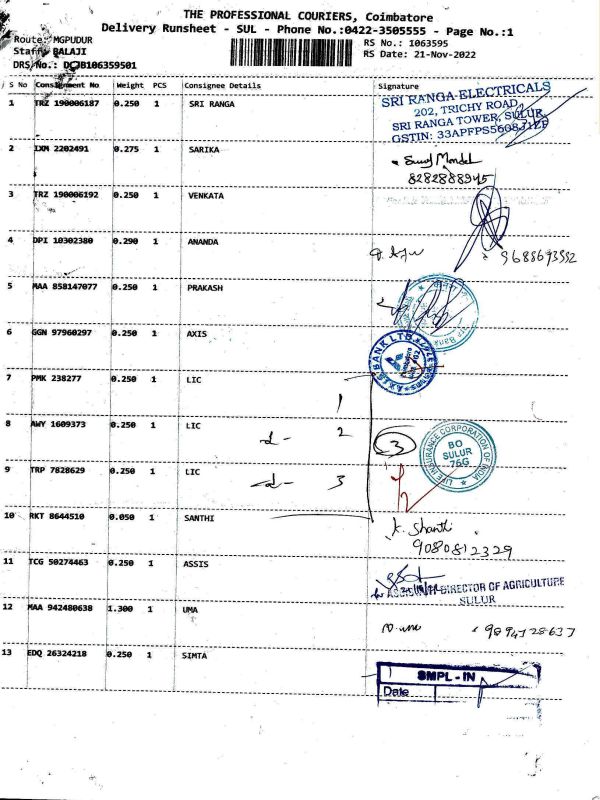 THE PROFESSIONAL COURIERS, Coimbatore
Delivery Runsheet - SUL - Phone No.:0422-3505555 - Page No.:1
Route: MGPUDUR
RS No.: 1063595
Staff: BALAJI
RS Date: 21-Nov-2022
DRS No.: DCJB106359501
S No Consignment No Weight PCS Consignee Details Signature
1 TRZ 190006187 0.250 1 SRI RANGA
SRI RANGA ELECTRICALS
202, TRICHY ROAD,
SRI RANGA TOWER, SULUR,
GSTIN: 33APFPS5608J1ZF
2 IXM 2202491 0.275 1 SARIKA
8282888945
3 TRZ 190006192 0.250 1 VENKATA
4 DPI 10302380 0.290 1 ANANDA
9688693552
5 MAA 858147077 0.250 1 PRAKASH
6 GGN 97960297 0.250 1 AXIS
AXIS BANK LTD
7 PMK 238277 0.250 1 LIC
1
8 AWY 1609373 0.250 1 LIC
2
3
LIFE INSURANCE CORPORATION OF INDIA
BO
SULUR
76G
9 TRP 7828629 0.250 1 LIC
3
10 RKT 8644510 0.050 1 SANTHI
K. Shanthi
9080812329
11 TCG 50274463 0.250 1 ASSIS
DIRECTOR OF AGRICULTURE
SULUR
12 MAA 942480638 1.300 1 UMA
9894728637
13 EDQ 26324218 0.250 1 SIMTA
SMPL - IN
Date